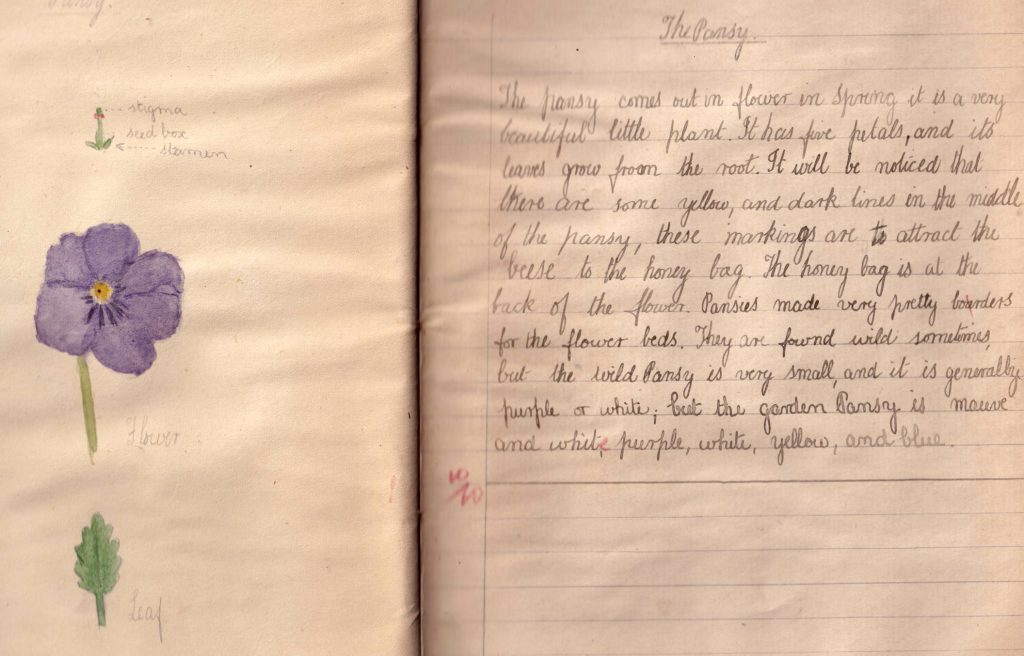 Pansy.
stigma
seed box
stamen
Flower
Leaf
The Pansy.
The pansy comes out in flower in Spring it is a very
beautiful little plant. It has five petals, and its
leaves grow from the root. It will be noticed that
there are some yellow, and dark lines in the middle
of the pansy, these markings are to attract the
beese to the honey bag. The honey bag is at the
back of the flower. Pansies made very pretty boarders
for the flower beds. They are fownd wild sometimes,
but the wild Pansy is very small, and it is generally
purple or white; but the garden Pansy is mauve
and white purple, white, yellow, and blue.
10/10